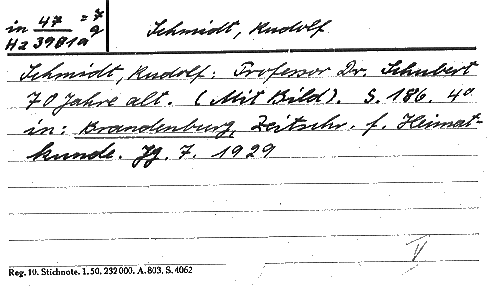 in 47 = 7
Hz 3981a 9
Schmidt, Rudolf
Schmidt, Rudolf: Professor Dr. Schubert
70 Jahre alt. (Mit Bild). S. 186. 4°
in: Brandenburg, Zeitschr. f. Heimat-
kunde. Jg. 7. 1929
V
Reg. 10. Stichnote. 1. 50, 232000. A. 803. S. 4062